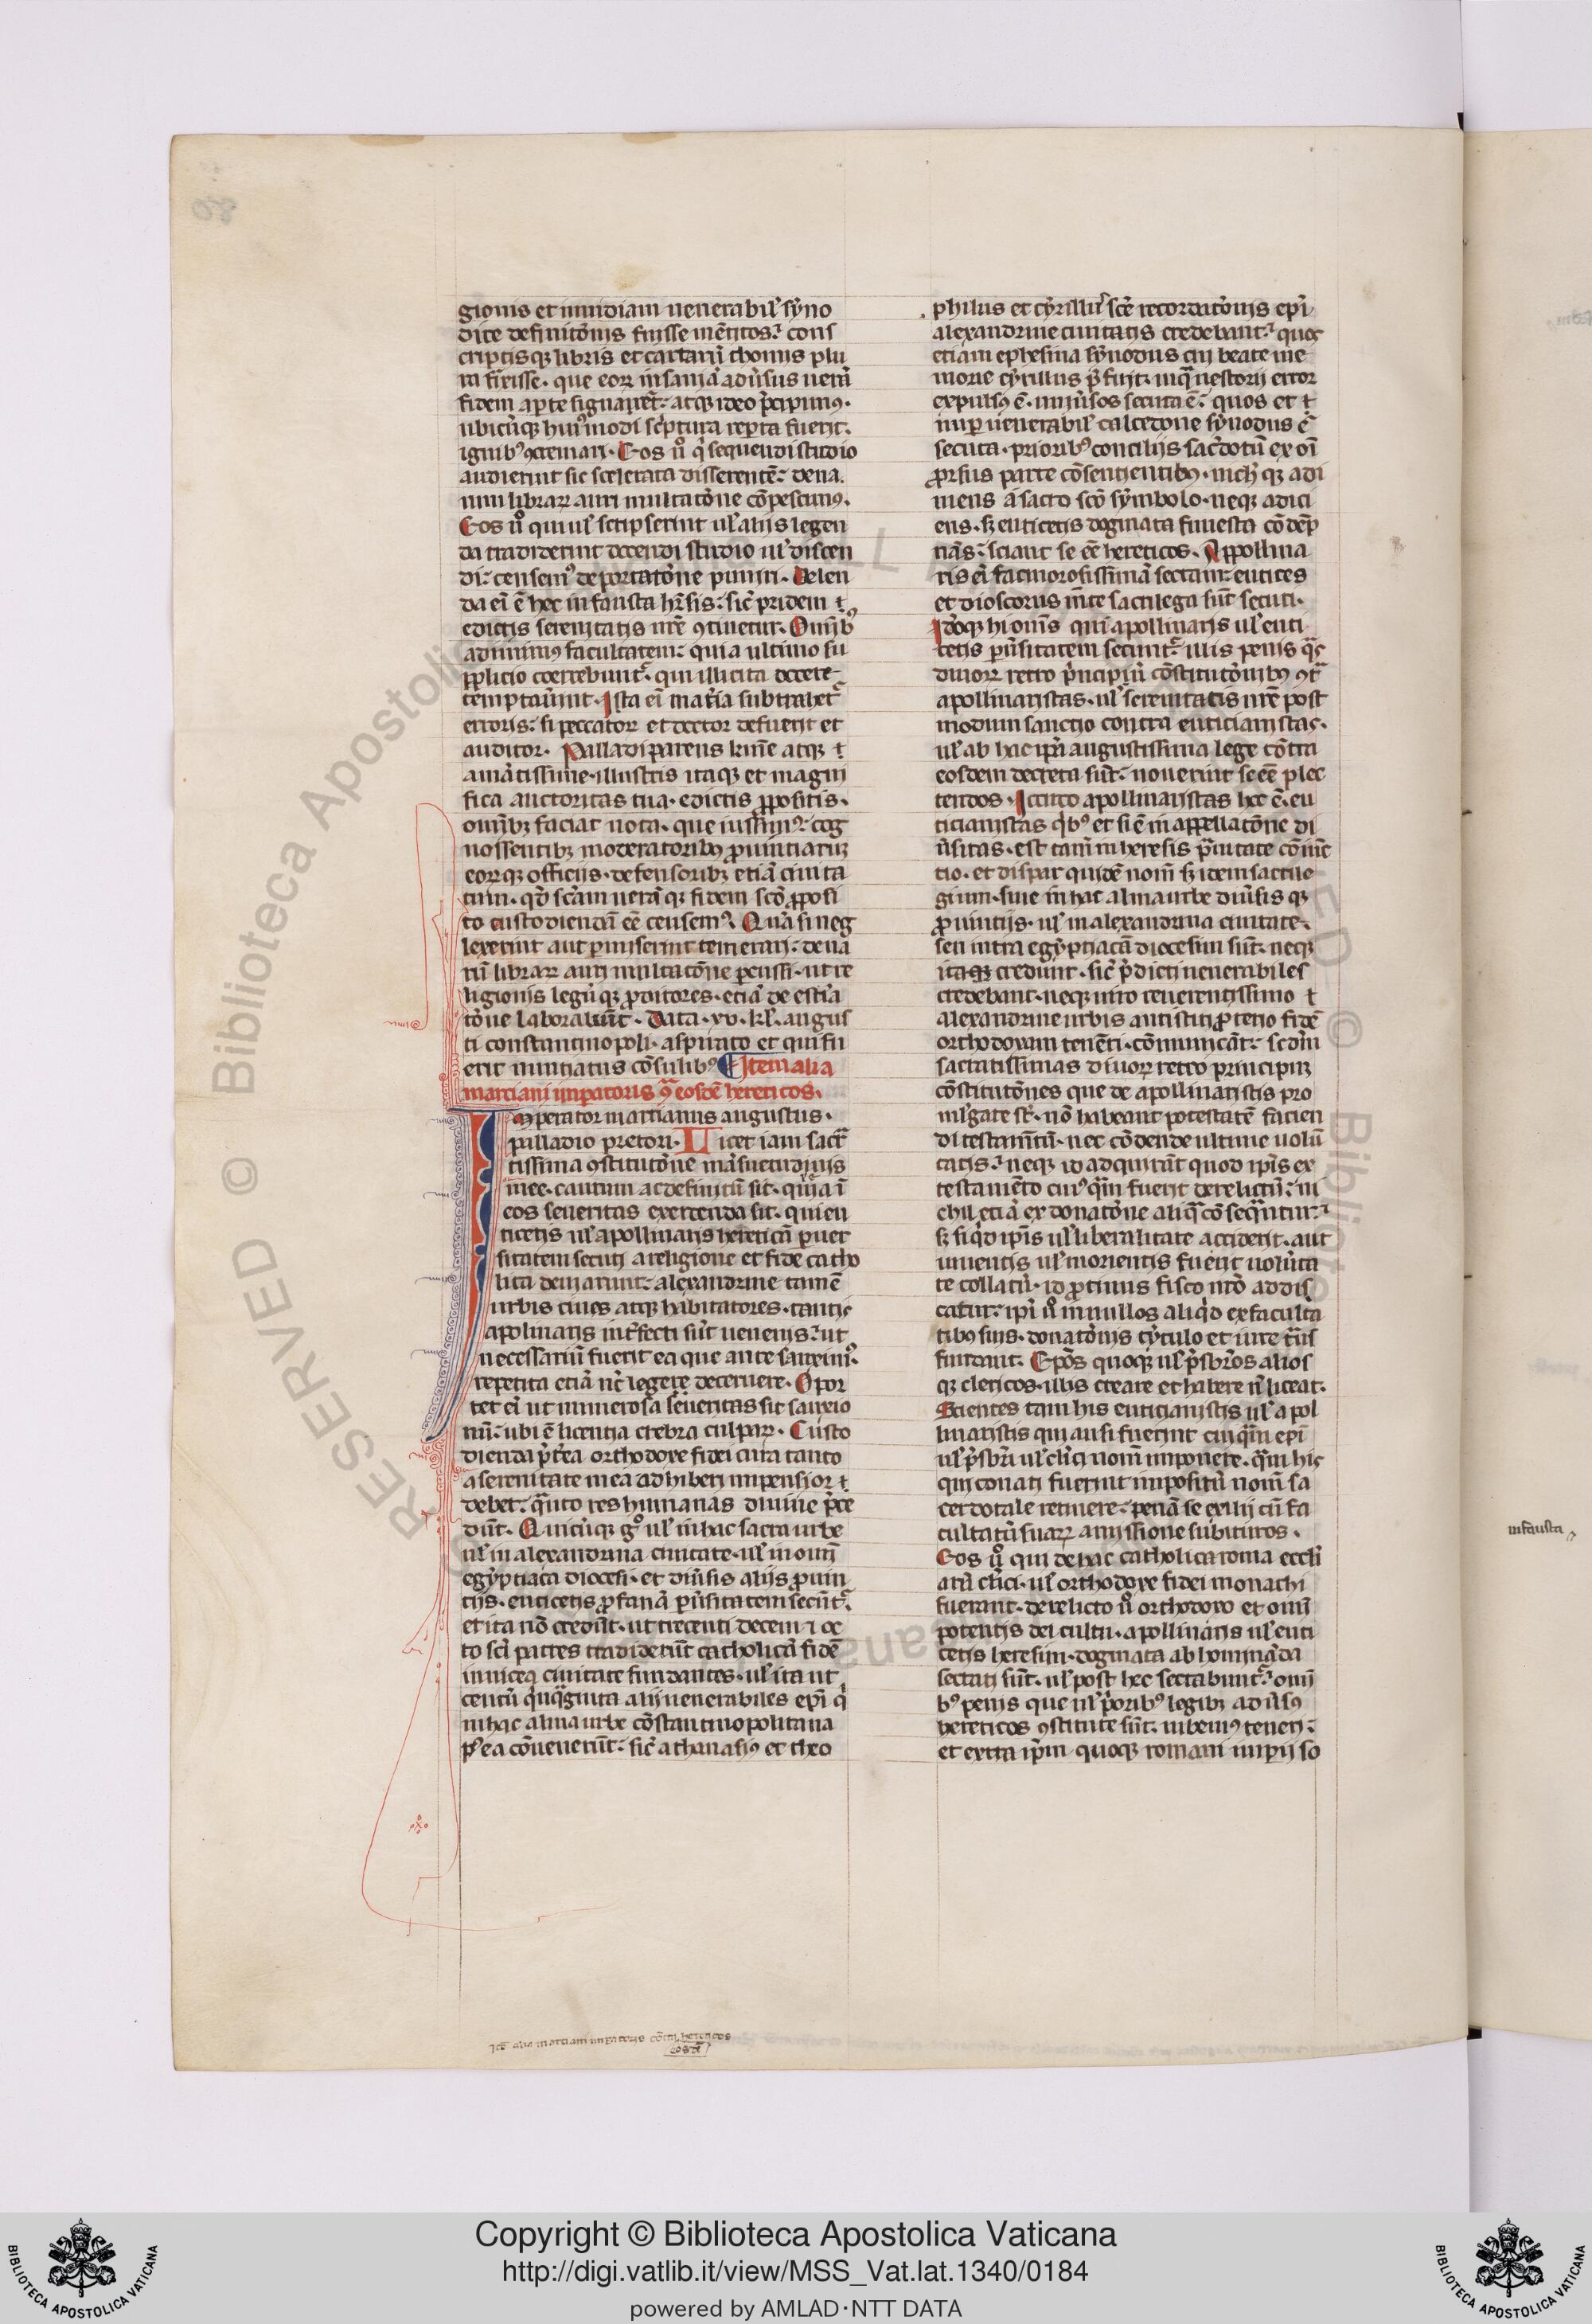 gionis et inuidiam uenerabil' syno
dice definitōnis fuisse mētitos. cons
criptisq; libris et cartarū thomis plu
ra finxisse. que eorꝝ insaniā aduersus uerā
fidem aperte signarēt. atq; ideo p̄cipimus.
ubicūq; huiusmodi sc̄ptura rep̱ta fuerit.
ignibꝰ ꝯcremari. Eos ū qi sequendi studio
audierint sic scelerata disserentē. dena
rum librarꝝ auri multatōne cōpescimꝰ.
Eos ū qui ul' scripserint ul' aliis legen
da tradiderint docendi studio ul' discen
di. censemꝰ deportatōne puniri. Delen
da eī ē hec infausta hēsis. sic̄ pridem ⁊
edictis serenitatis nr̄e ꝯtinetur. Omībꝰ
adimimꝰ facultatem. quia ultimo su
pplicio coercebunt᷑. qui illicita docere
temptauerint. Ista eī mat̄ia subtrahet᷑
erroris. si peccator et doctor defuerit et
auditor. Palladi parens kme atq; ⁊
amātissime. illustris itaq; et magni
fica auctoritas tua. edictis ꝓpositis.
omībꝫ faciat nota. que iussimꝰ. cog
noscentibꝫ moderatoribꝫ ꝓuintiarum
eorꝝq; officiis. defensoribꝫ etiā ciuita
tum. qd̄ scāam uerāq; fidem scō ꝓposi
to custodiendā eē censemꝰ. Quā si neg
lexerint aut ꝑmiserint temerari. dena
rū librarꝝ auri multatōne ꝑcussi. ut re
ligionis legūq; ꝓditores. etiā de estīa
tōne laborabūt. Data. xv. kl'. augus
ti constantinopoli. aspirato et qui fu
erit nuntiatus cōsulibꝰ ¶ Item alia
martiani imꝑatoris ꝯ̄ eosdē hereticos.
Imperator martianus augustus.
palladio pretori. Licet iam sacra
tissima ꝯstitutōne māsuetudinis
mee. cautum ac definitū sit. q̄nā ī
eos seueritas exercenda sit. qui eu
ticetis ul' apollinaris hereticā ꝑuer
sitatem secuti a religione et fide catho
lica deuiarunt. alexandrine tamē
urbis ciues atq; habitatores. tantis
apolinaris int̄fecti sūt uenenis. ut
necessariū fuerit ea que ante sanximꝰ.
repetita etiā nc̄ legere decernere. Opor
tet eī ut numerosa seueritas sit sanxio
nū. ubi ē licentia crebra culparꝝ. Custo
dienda p̄t̄ea orthodoxe fidei cura tanto
a serenitate mea adhiberi impensior ⁊
debet. q̄nto res humanas diuine p̄ce
dūt. Quicūq; gͦ ul' in hac sacra urbe
ul' in alexandrina ciuitate. ul' in omī
egyptiaca diocesi. et diūsis aliis ꝓuin
tiis. euticetis ꝓfanā ꝑūsitatem secūt᷑.
et ita nō credūt. ut trecenti decem ⁊ oc
to sci patres tradiderūt catholicā fidē
in nicea ciuitate fundantes. ul' ita ut
centū q̄nq̄ginta alii uenerabiles epi qi
in hac alma urbe cōstantinopolitana
pꝰea cōuenerūt. sic̄ athanasiꝰ et theo
philus et cyrillus scē recordatōnis epi
alexandrine ciuitatis credebant. quos
etiam ephesina synodus cui beate me
morie cyrillus p̄fuit. in q̄ nestorii error
expulsꝰ ē. in uniūsos secuta ē. quos et ⁊
nuꝑ uenerabil' calcedone synodus ē
secuta. prioribꝰ conciliis sac̄dotū ex oī
ꝓrsus parte cōsentientibꝰ. nichilq; adi
mens a sacro scō symbolo. neq; adici
ens. sꝫ euticetis dogmata funesta cōdēp
nās. sciant se eē hereticos. Appollina
ris eī facinorosissimā sectam. eutices
et dioscorus mēte sacrilega sūt secuti.
Idoq; hi om̄s qui apollinaris ul' euti
cetis ꝑūsitatem secunt᷑. illis penis q̄s
diuorꝝ retro p̄ncipū cōstitutōnibꝫ ꝯt᷑
apollinaristas. ul' serenitatis nr̄e post
modum sanctio contra euticianistas.
ul' ab hac ip̄a augustissima lege cōtra
eosdem decreta sūt. nouerint se eē plec
tendos. Iccirco apollinaristas hoc ē. eu
ticianistas q̄bꝰ et si ē in appellatōne di
ūsitas. est tam̄ in heresis p̄uitate cōiūc
tio. et dispar quidē nom̄ sꝫ idem sacrile
gium. siue in hac alma urbe diūsis q;
ꝓuintiis. ul' in alexandrina ciuitate.
seu intra egyptiacā diocesim sūt. neq;
ita credunt. sic̄ p̄dicti uenerabiles
credebant. neq; uiro reuerentissimo ⁊
alexandrine urbis antistiti ꝓterio fidē
orthodoxam tenēti. cōmunicāt. scdm̄
sacratissimas diuorꝝ retro principum
cōstitutōnes que de apollinaristis pro
mlgate sūt. nō habeant potestatē facien
di testam̄tū. nec cōdende ultime uolū
tatis. neq; id adquirāt quod ip̄is ex
testamēto cuiꝰq̄m fuerit derelictū. ni
chil etiā ex donatōne aliq̄ cōseq̄ntur.
sꝫ si q̄d ip̄is ul' liberalitate acciderit. aut
uiuentis ul' morientis fuerit uolūta
te collatū. id ꝓtinus fisco nr̄o addis
catur. ip̄i ū in nullos aliq̄d ex faculta
tibꝫ suis. donatōnis tytulo et iure t̄ns
fundant. Ep̄os quoq; ul' p̄sbr̄os alios
q; clericos. illis creare et habere n̄ liceat.
Scientes tam his euticianistis ul' apol
linaristis qui ausi fuerint cuiq̄m epi
ul' p̄sbr̄i ul' cl̄ici nom̄ imponere. q̄m his
qui conati fuerint impositū nom̄ sa
cerdotale retinere. penā se exilii cū fa
cultatū suarꝝ amissione subituros.
Eos ū qui de hac catholica roma eccl'i
arū cl̄ici. ul' orthodoxe fidei monachi
fuerant. derelicto ū orthodoxo et omī
potentis dei cultu. apollinaris ul' euti
cetis heresim. dogmata abhomināda
sectati sūt. ul' post hec sectabunt᷑. omi
bꝰ penis que ul' p̄oribꝰ legibꝫ adūsꝰ
hereticos ꝯstitute sūt. iubemꝰ teneri.
et extra ip̄m quoq; romani imꝑii so
Itē alia martiani imꝑatoris cōtra hereticos
eosdē
infausta
Copyright © Biblioteca Apostolica Vaticana
http://digi.vatlib.it/view/MSS_Vat.lat.1340/0184
powered by AMLAD·NTT DATA
BIBLIOTECA APOSTOLICA VATICANA
BIBLIOTECA APOSTOLICA VATICANA